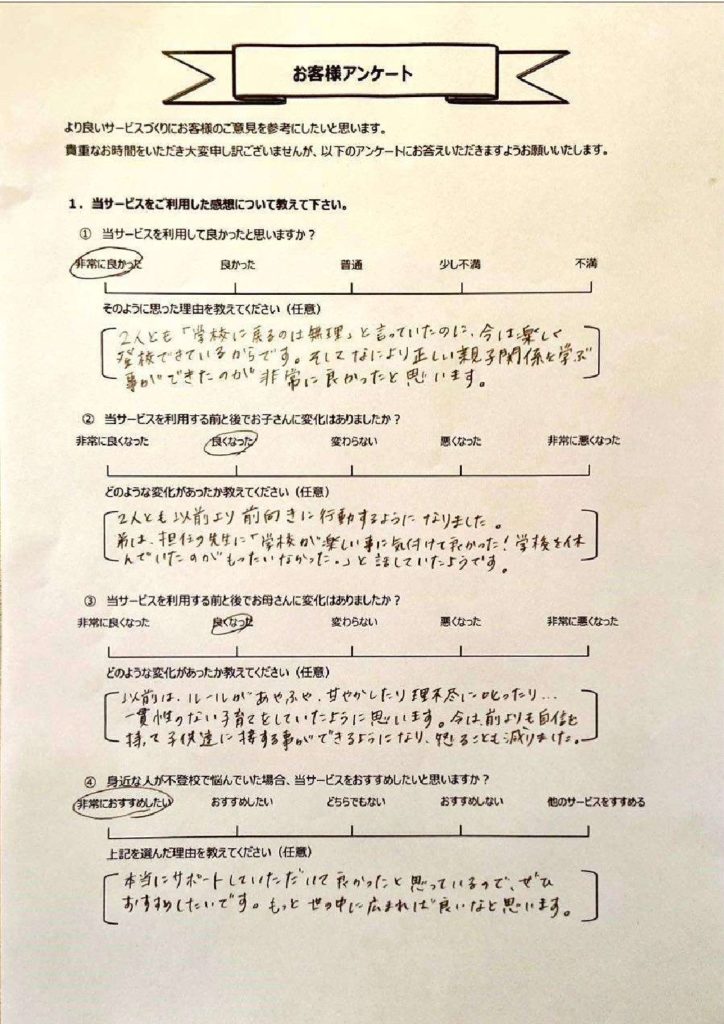 お客様アンケート
より良いサービスづくりにお客様のご意見を参考にしたいと思います。
貴重なお時間をいただき大変申し訳ございませんが、以下のアンケートにお答えいただきますようお願いいたします。
1．当サービスをご利用した感想について教えて下さい。
① 当サービスを利用して良かったと思いますか？
非常に良かった 良かった 普通 少し不満 不満
そのように思った理由を教えてください（任意）
2人とも「学校に戻るのは無理」と言っていたのに、今は楽しく
登校できているからです。そしてなにより正しい親子関係を学ぶ
事ができたのが非常に良かったと思います。
② 当サービスを利用する前と後でお子さんに変化はありましたか？
非常に良くなった 良くなった 変わらない 悪くなった 非常に悪くなった
どのような変化があったか教えてください（任意）
2人とも以前より前向きに行動するようになりました。
弟は、担任の先生に「学校が楽しい事に気付けて良かった！学校を休
んでいたのがもったいなかった。」と話していたようです。
③ 当サービスを利用する前と後でお母さんに変化はありましたか？
非常に良くなった 良くなった 変わらない 悪くなった 非常に悪くなった
どのような変化があったか教えてください（任意）
以前は、ルールがあやふや、甘やかしたり理不尽に叱ったり…
一貫性のない子育てをしていたように思います。今は、前よりも自信を
持って子供達に接する事ができるようになり、怒ることも減りました。
④ 身近な人が不登校で悩んでいた場合、当サービスをおすすめしたいと思いますか？
非常におすすめしたい おすすめしたい どちらでもない おすすめしない 他のサービスをすすめる
上記を選んだ理由を教えてください（任意）
本当にサポートしていただいて良かったと思っているので、ぜひ
おすすめしたいです。もっと世の中に広まれば良いなと思います。